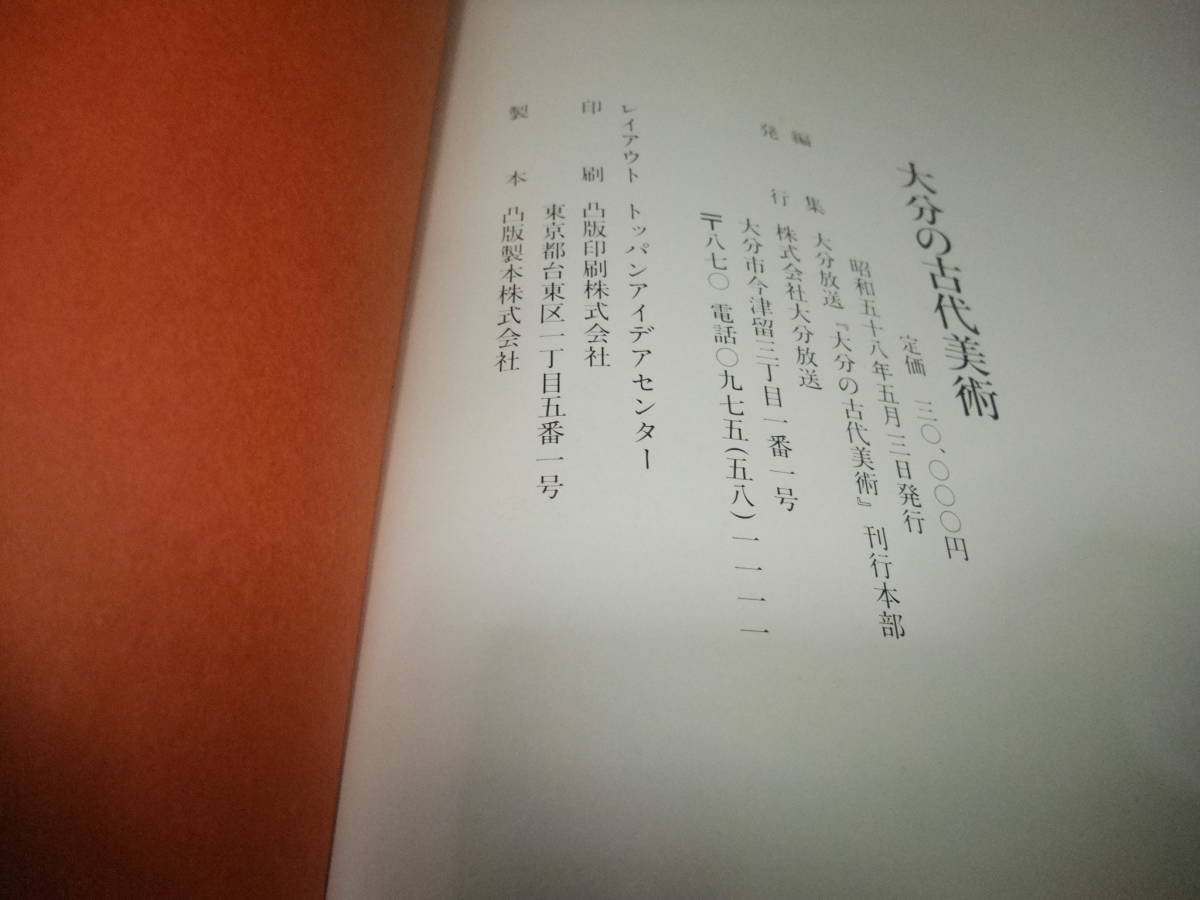 大分の古代美術
定価 三〇、〇〇〇円
昭和五十八年五月三日発行
編集 大分放送『大分の古代美術』刊行本部
発行 株式会社大分放送
大分市今津留三丁目一番一号
〒八七〇 電話〇九七五(五八)一一一一
レイアウト トッパンアイデアセンター
印刷 凸版印刷株式会社
東京都台東区一丁目五番一号
製本 凸版製本株式会社